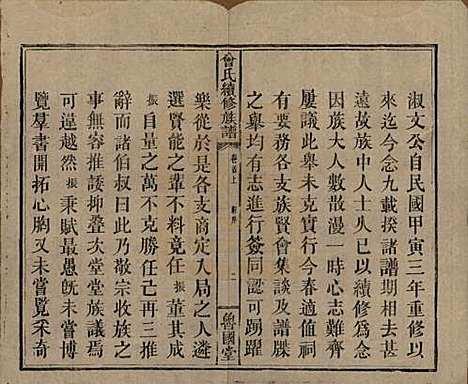 淑文公自民國甲寅三年重修以
來迄今念九載揆諸譜期相去甚
遠故族中人士久已以續修為念
因族大人數散漫一時心志難齊
屢議此舉未克實行今春適值祠
有要務各支族賢會集談及譜牒
之舉均有志進行簽同認可踴躍
曾氏續修族譜
卷首上
新序
二
魯國堂
樂從於是各支商定入局之人遴
選賢能之輩不料竟任振董其成
振自量之萬不克勝任已再三推
辭而諸伯叔曰此乃敬宗收族之
事無容推諉抑疊次堂堂族議焉
可違越然振秉賦最愚旣未嘗博
覽羣書開拓心胸又未嘗覽采奇